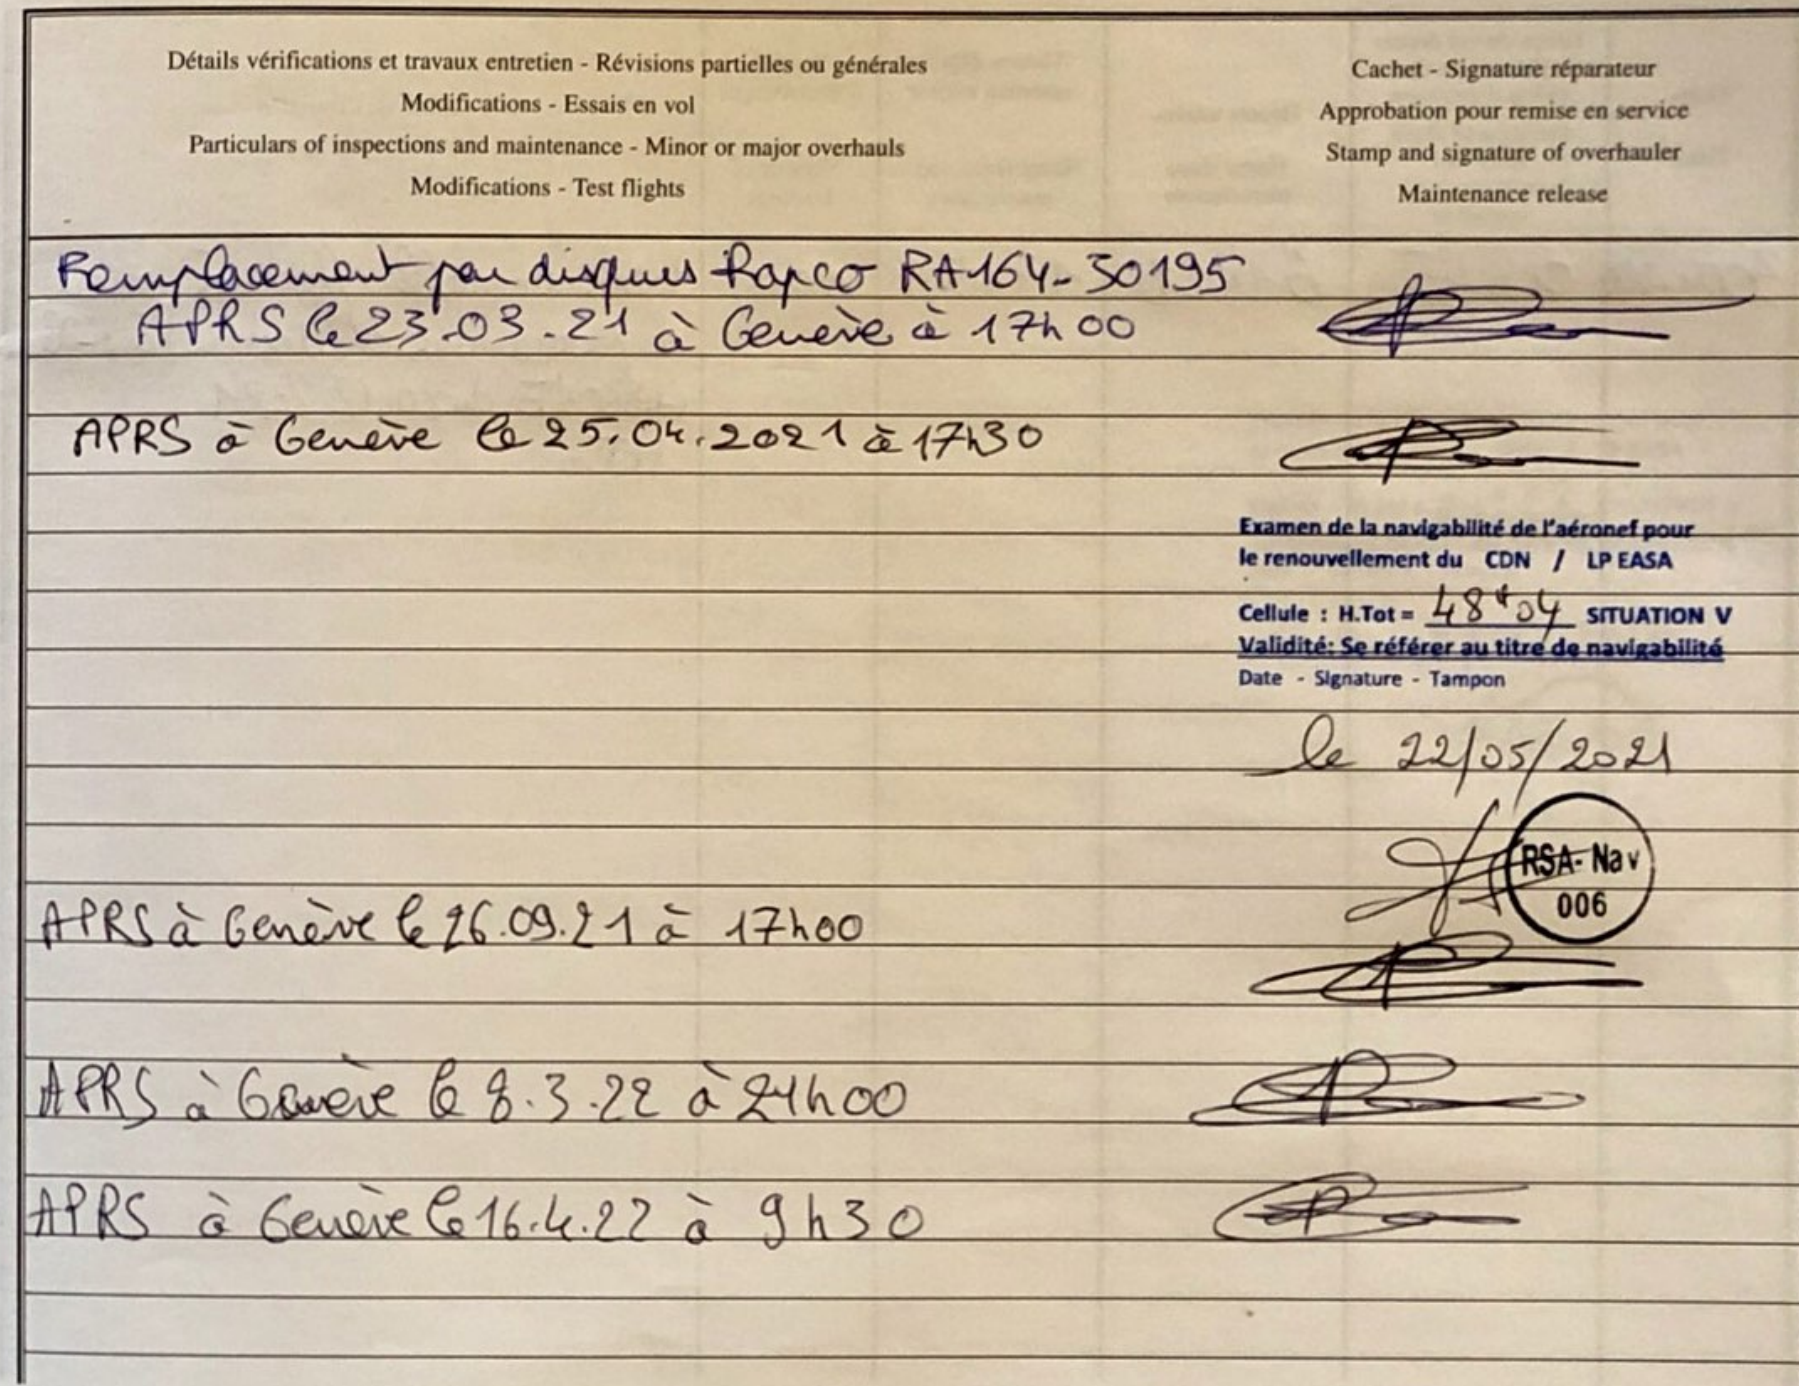 Détails vérifications et travaux entretien - Révisions partielles ou générales
Modifications - Essais en vol
Particulars of inspections and maintenance - Minor or major overhauls
Modifications - Test flights
Cachet - Signature réparateur
Approbation pour remise en service
Stamp and signature of overhauler
Maintenance release
Remplacement par disques Rapco RA164-30195
APRS le 23.03.21 à Genève à 17h00
APRS à Genève le 25.04.2021 à 17h30
Examen de la navigabilité de l'aéronef pour
le renouvellement du CDN / LP EASA
Cellule : H.Tot = SITUATION V
Validité: Se référer au titre de navigabilité
Date - Signature - Tampon
le 22/05/2021
RSA-Nav
006
APRS à Genève le 26.09.21 à 17h00
APRS à Genève le 8.3.22 à 21h00
APRS à Genève le 16.4.22 à 9h30